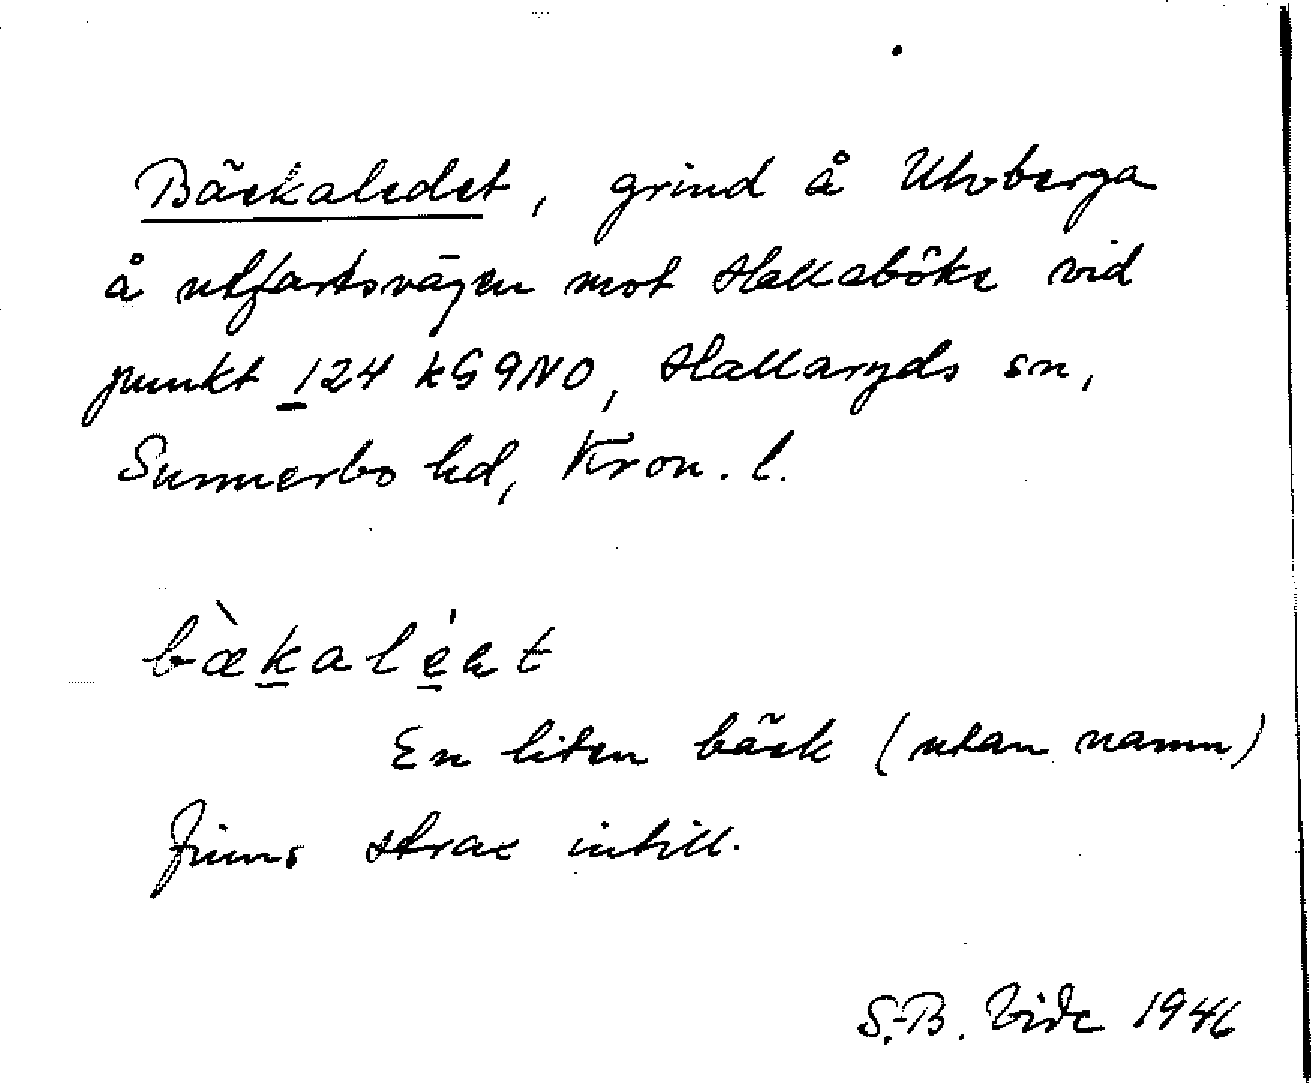 Bäckaledet, grind å Ulvberga
å utfartsvägen mot Hallaböke vid
punkt 124 kG9NO, Hallaryds sn,
Sunnerbo hd, Kron. l.
bækaléat
En liten bäck (utan namn)
finns strax intill.
S.-B. Vide 1946